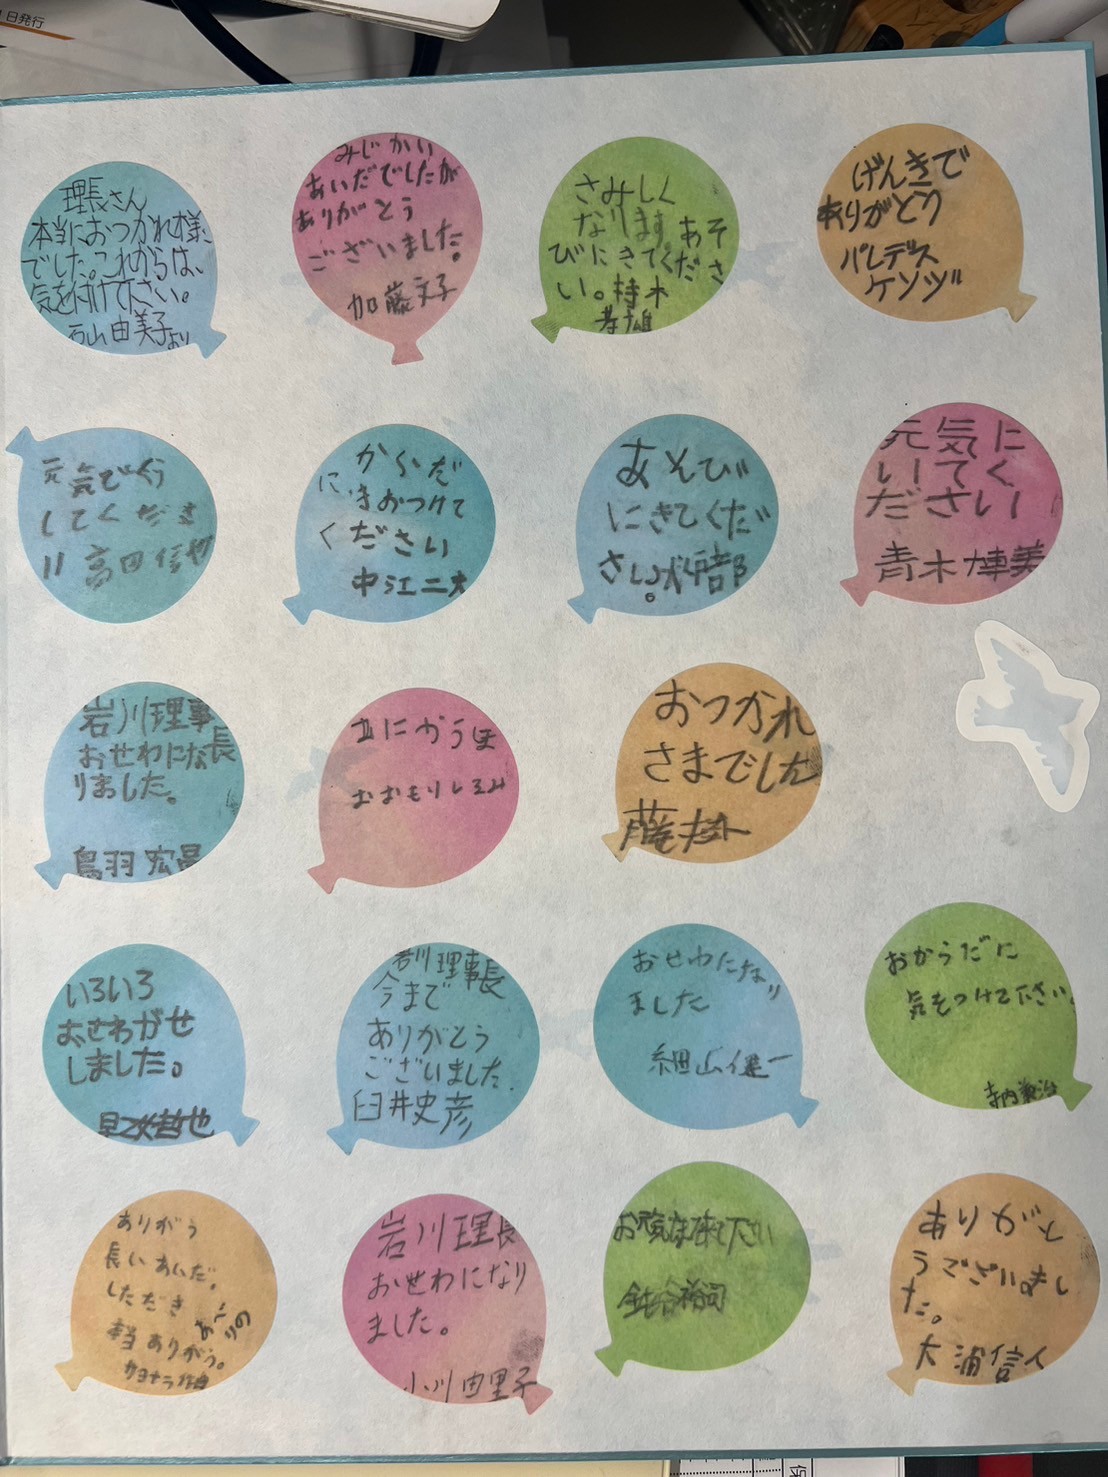 1日発行
理長さん
本当におつかれ様
でした。これからは、
気を付けて下さい。
西山由美子より
みじかい
あいだでしたが
ありがとう
ございました。
加藤文子
さみしく
なります。あそ
びにきてくださ
い。
げんきで
ありがとう
パレデス
ケンヅ
元気でくら
してくださ
い 高田信也
からだ
に、きおつけて
ください
中江二夫
あそび
にきてくだ
さい。
元気に
いてく
ださい
青木博美
岩川理事長
おせわにな
りました。
鳥羽宏
おつかれ
さまでした
いろいろ
おせわがせ
しました。
哲也
岩川理事長
今まで
ありがとう
ございました.
臼井史彦
おせわになり
ました
細山健一
おからだに
気をつけて下さい。
寺内
ありがう
長いあいだ。
しただき
ありがう。
岩川理長
おせわになり
ました。
小川由里子
裕司
ありがと
うございまし
た。
大浦信人